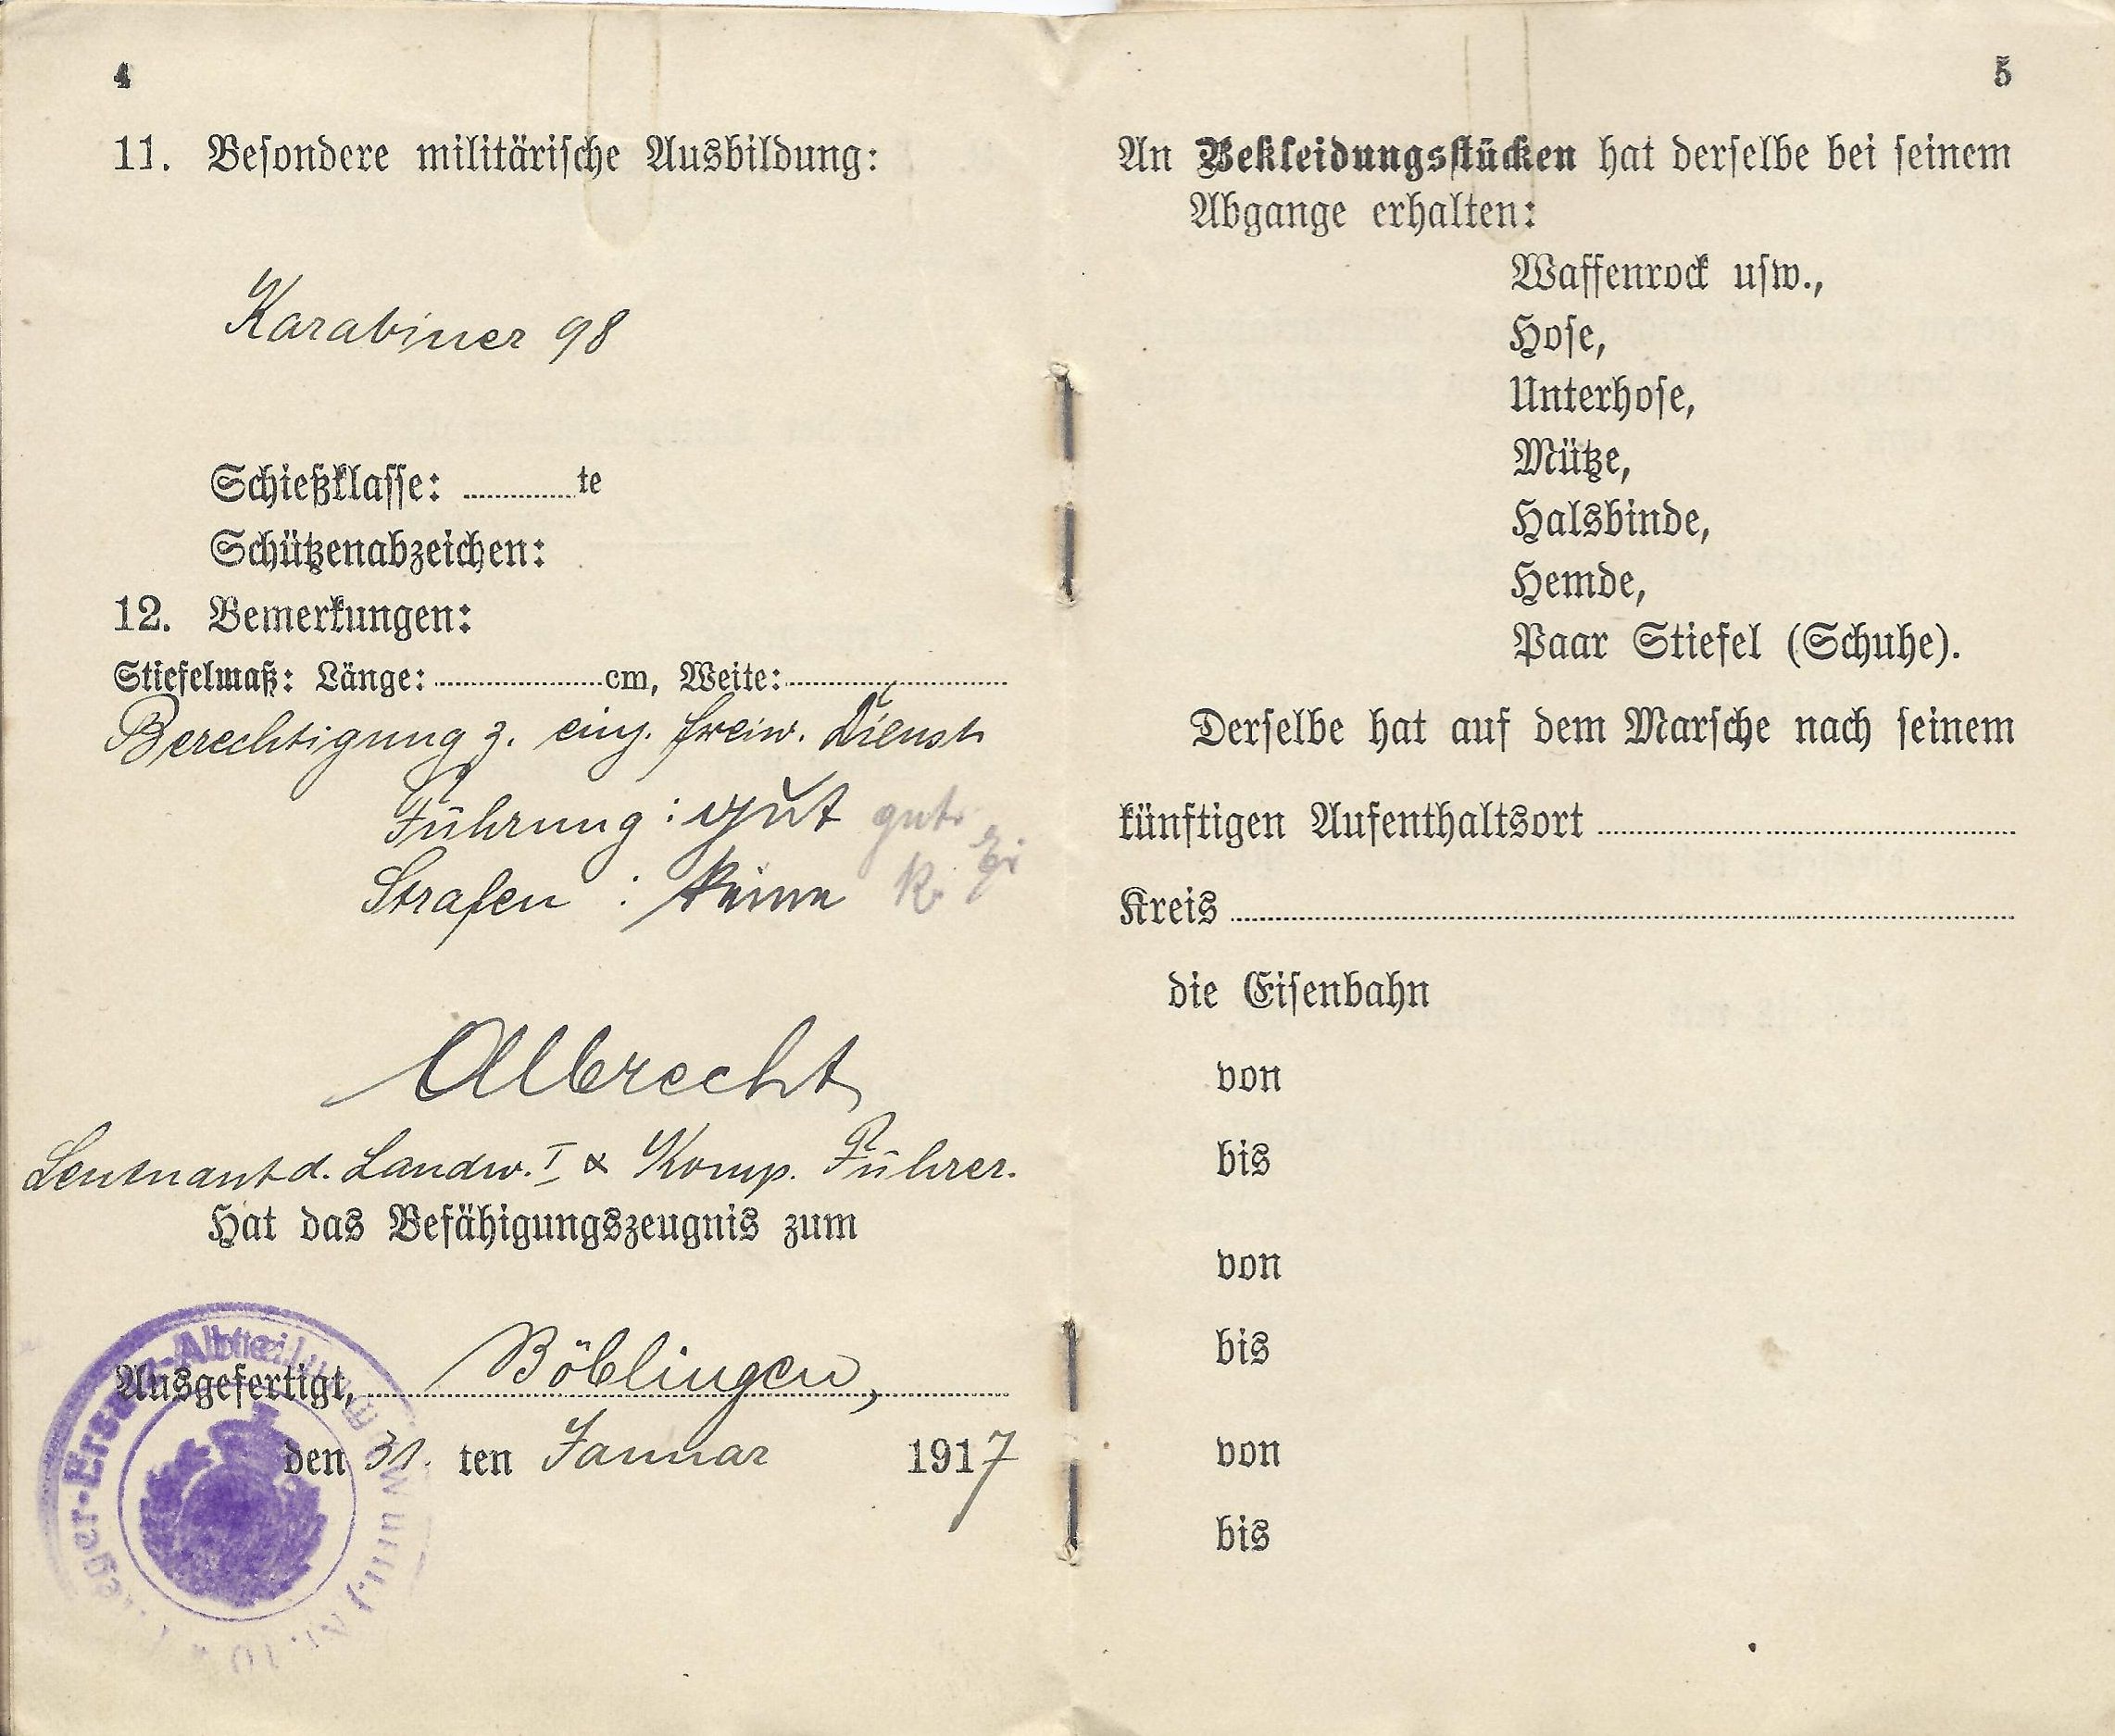 4
11. Besondere militärische Ausbildung:
Karabiner 98
Schießklasse: ............te
Schützenabzeichen:
12. Bemerkungen:
Stiefelmaß: Länge:..................cm, Weite:........................
Berechtigung z. einj. freiw. Dienst
Führung : gut gut
Strafen : keine
Albrecht
Leutnant d. Landw. I & Komp. Führer.
Hat das Befähigungszeugnis zum
Ausgefertigt, Böblingen,
den 31. ten Januar 1917
5
An Bekleidungsstücken hat derselbe bei seinem
Abgange erhalten:
Waffenrock usw.,
Hose,
Unterhose,
Mütze,
Halsbinde,
Hemde,
Paar Stiefel (Schuhe).
Derselbe hat auf dem Marsche nach seinem
künftigen Aufenthaltsort ........................................
Kreis ........................................
die Eisenbahn
von
bis
von
bis
von
bis